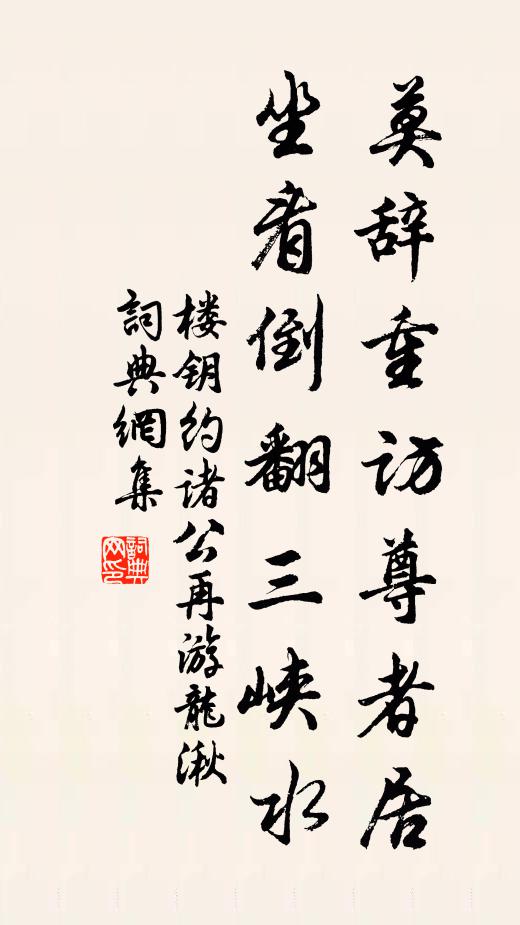 莫辞重访尊者居
坐看倒翻三峡水
楼钥约诸公再游龍湫
詞典網集
詞典网印